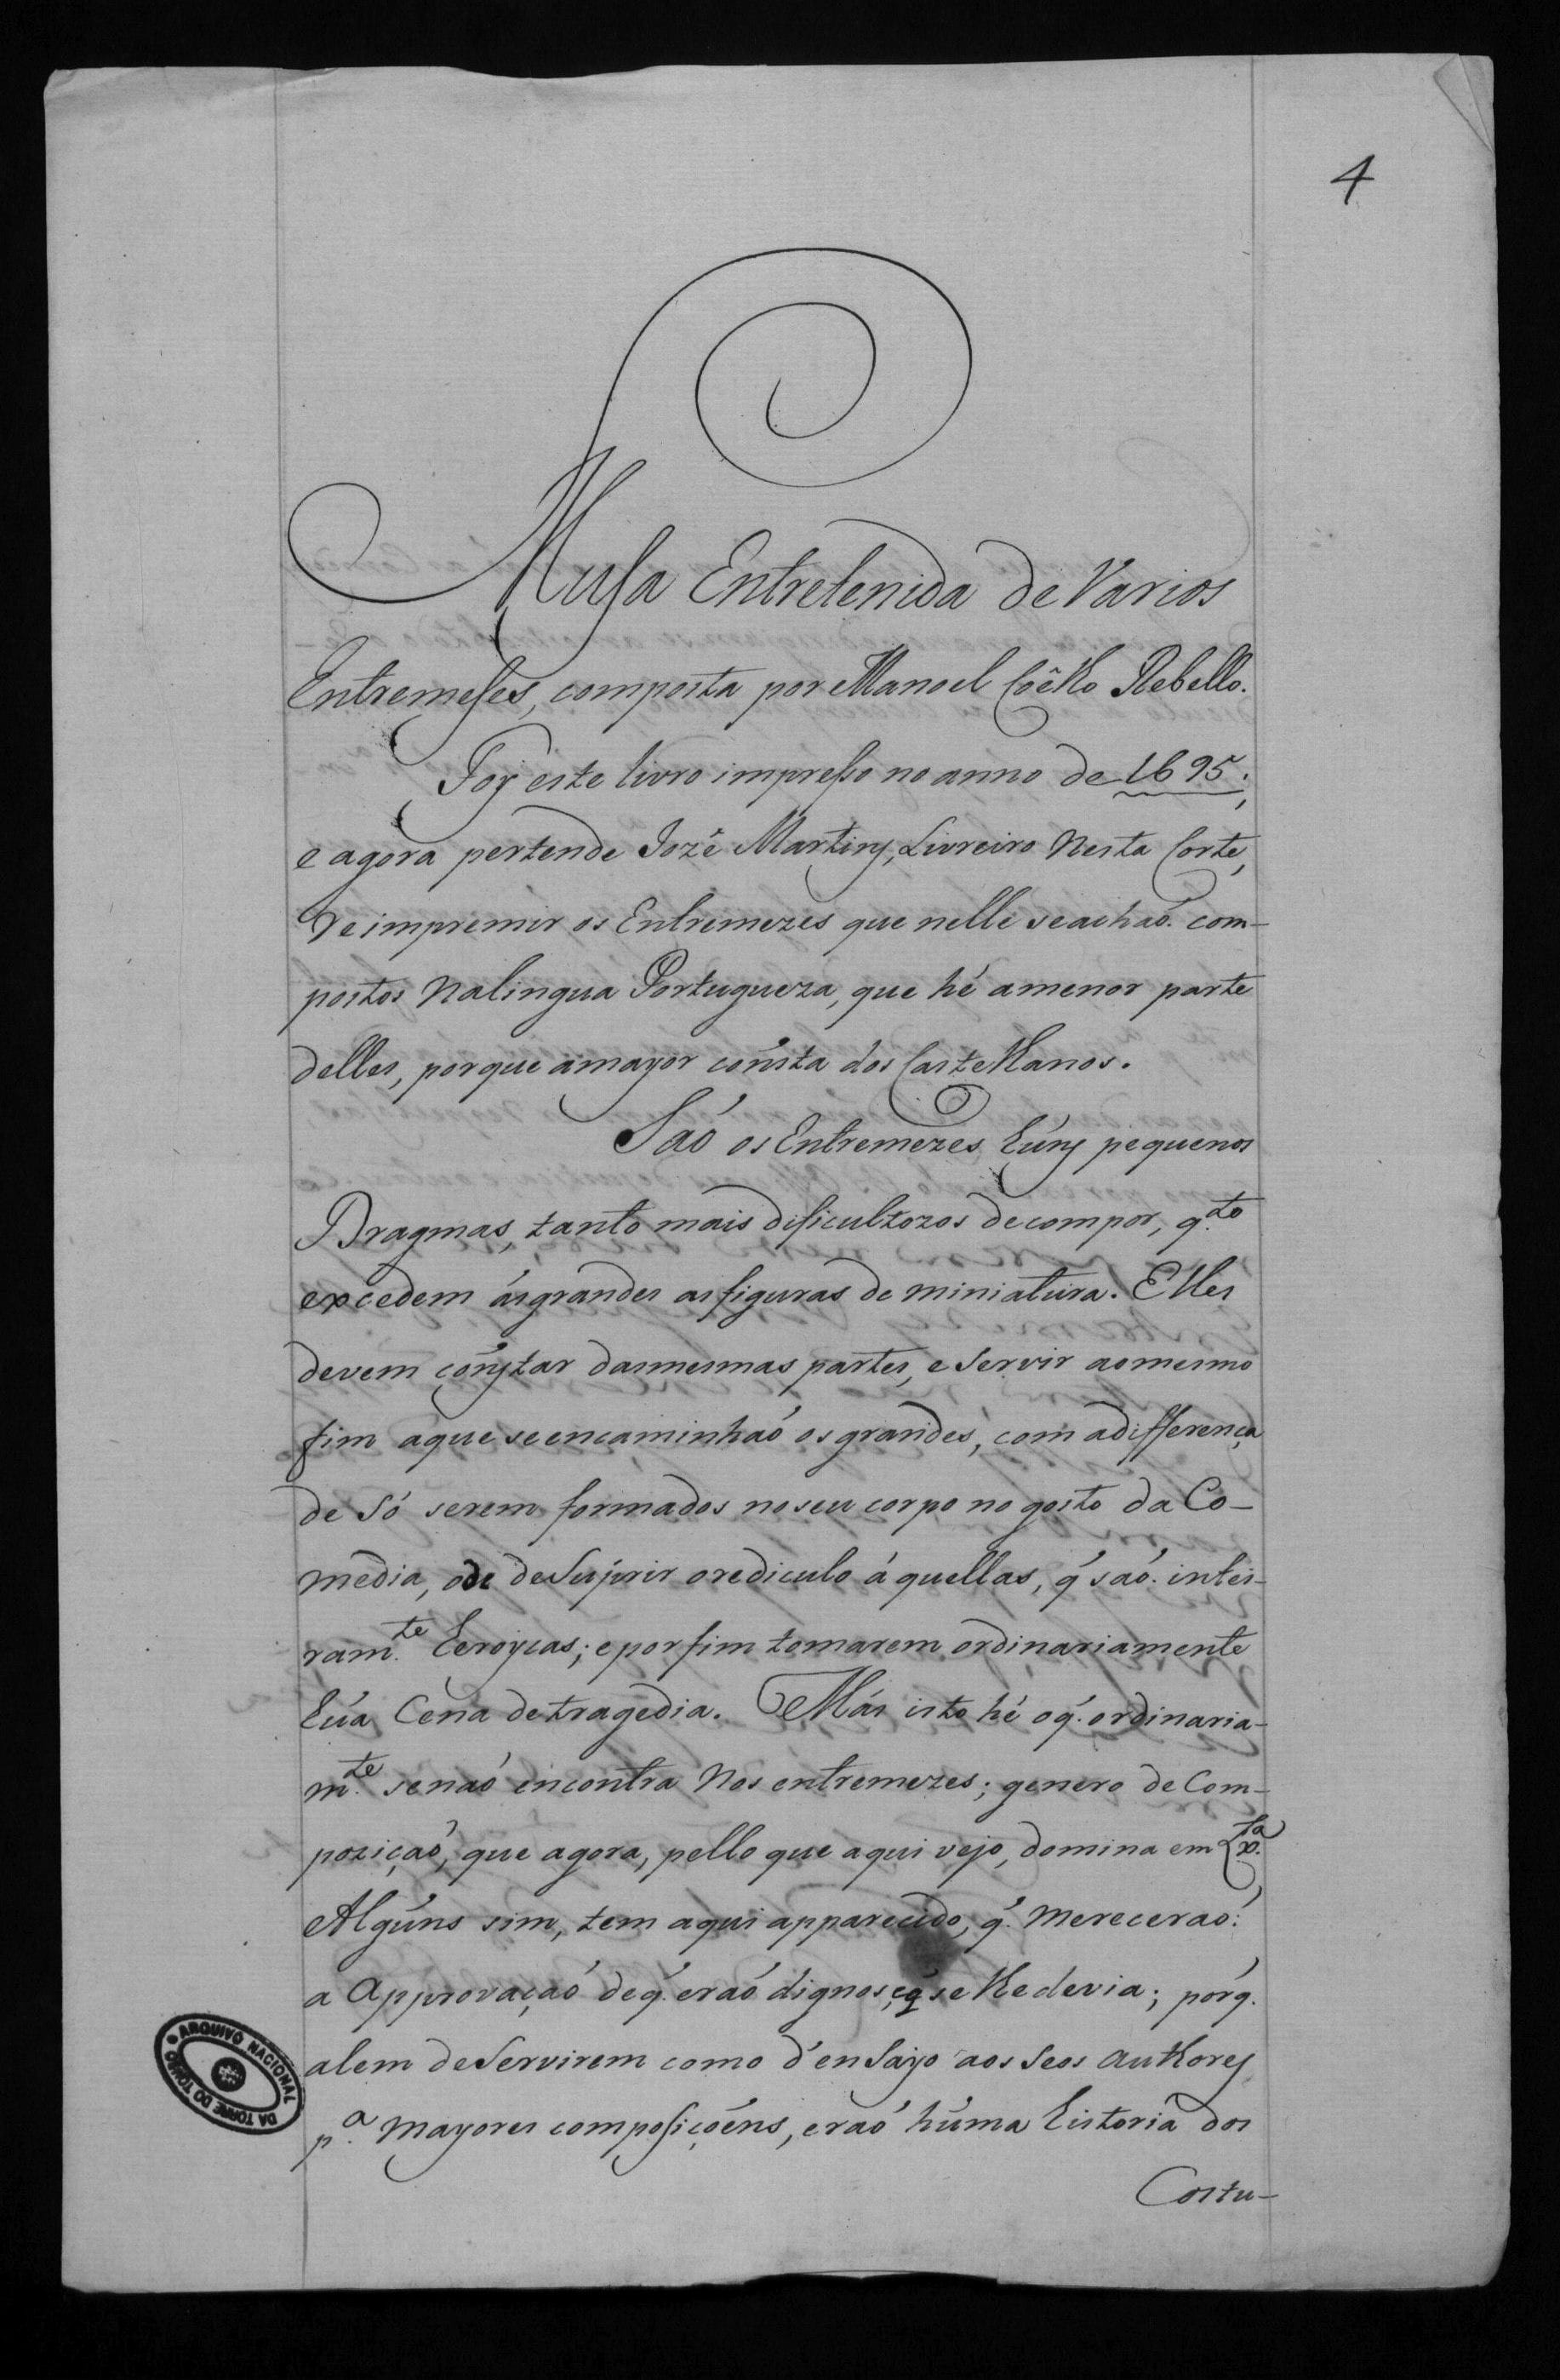 4
Musa Entretenida de Varios
Entremeses, composta por Manoel Coêlho Rebello.
Foy este livro impresso no anno de 1695;
e agora pertende Jozê Martins, Livreiro nesta Corte,
reimpremir os Entremezes que nelle se achaõ com-
postos na lingua Portugueza, que hé a menor parte
delles, porque a mayor consta dos Castelhanos.
Saõ os Entremezes huns pequenos
Dragmas, tanto mais dificultozos de compor, q.to
excedem ás grandes as figuras de miniatura. Elles
devem constar das mesmas partes, e servir ao mesmo
fim a que se encaminhaõ os grandes, com a differença
de só serem formados no seu corpo no gosto da Co-
media, o de suprir o rediculo á quellas, q́ saõ intei-
ram.te heroycas; e por fim tomarem ordinariamente
hua Cena de tragedia. Más isto hé o q́. ordinaria-
m.te se naõ encontra nos entremezes; genero de Com-
poziçaõ, que agora, pello que aqui vejo, domina em Lx.a
Alguns sim, tem aqui apparecido, q́. mereceraõ
a approvaçaõ de q́. eraõ dignos, e q́ se lhe devia; porq́.
alem de servirem como d'ensayo aos seos authores
p.a mayores composiçoéns, eraõ húma historia dos
Costu-
ARQUIVO NACIONAL
DA TORRE DO TOMBO